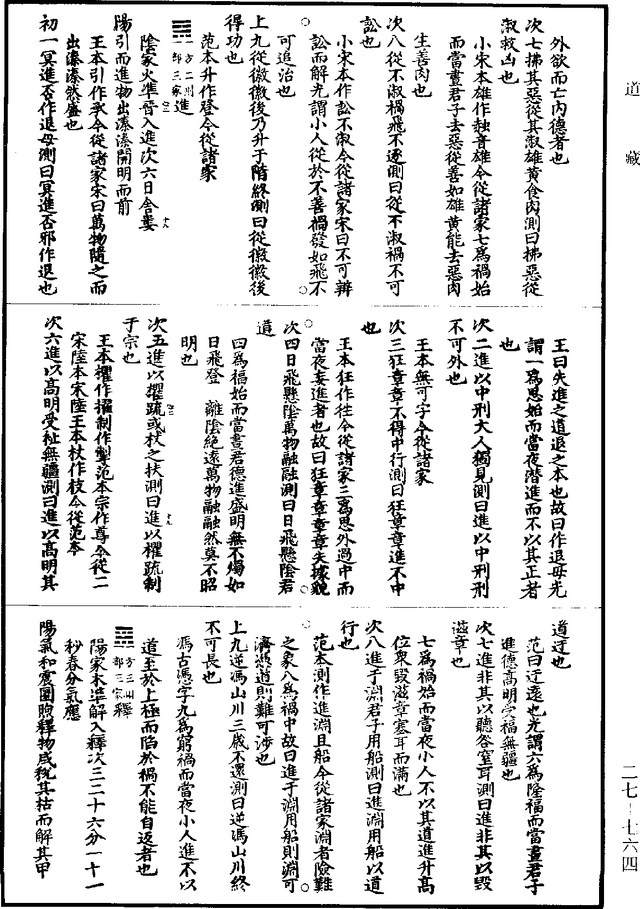 道藏
外欲而亡內德者也
次七拂其惡從其淑雄黃食肉測曰拂惡從
淑救凶也
小宋本雄作雌音雄今從諸家七為禍始
而當晝君子去惡從善如雄黃能去惡肉
生善肉也
次八從不淑禍飛不逐測曰從不淑禍不可
訟也
小宋本作訟不淑今從諸家宋曰不可辨
訟而解光謂小人從於不善禍發如飛不
可追治也
上九從徽徽後乃升于階終測曰從徽徽後
得功也
范本升作登今從諸家
一方二州一部三家進
陰家火準晉入進次六日舍婁
陽引而進物出溱溱開明而前
王本引作承今從諸家宋曰萬物隨之而
出溱溱然盛也
初一冥進否作退母測曰冥進否邪作退也
王曰失進之道退之本也故曰作退母光
謂一為思始而當夜潛進而不以其正者
也
次二進以中刑大人獨見測曰進以中刑刑
不可外也
王本無可字今從諸家
次三狂章章不得中行測曰狂章章進不中
也
王本狂作往今從諸家三為思外過中而
當夜妄進者也故曰狂章章章章失據貌
次四日飛懸陰萬物融融測曰日飛懸陰君
道
四為福始而當晝君德進盛明無不燭如
日飛登離陰絕遠萬物融融然莫不昭
明也
次五進以欋疏或杖之扶測曰進以欋疏制
于宗也
王本欋作擢制作掣范本宗作尊今從二
宋陸本宋陸王本杖作枝今從范本
次六進以高明受祉無疆測曰進以高明其
道迂也
范曰迂遠也光謂六為隆福而當晝君子
進德高明受福無疆也
次七進非其以聽咎窒耳測曰進非其以毀
滋章也
七為禍始而當夜小人不以其道進升高
位衆毀滋章塞耳而滿也
次八進于淵君子用船測曰進淵用船以道
行也
范本測作進淵且船今從諸家淵者險難
之象八為禍中故曰進于淵用船則淵可
濟憑道則難可涉也
上九逆馮山川三歲不還測曰逆馮山川終
不可長也
馮古憑字九為窮禍而當夜小人進不以
道至於上極而陷於禍不能自返者也
一方三州一部三家釋
陽家木準解入釋次三二十六分一十一
秒春分氣應
陽氣和震圜煦釋物咸稅其枯而解其甲
二七-七六四